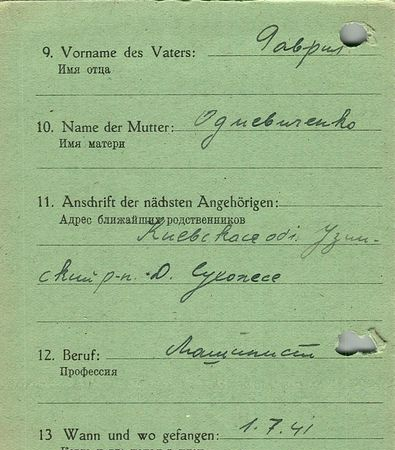 9. Vorname des Vaters: Гаврил
Имя отца
10. Name der Mutter: Одневиченко
Имя матери
11. Anschrift der nächsten Angehörigen:
Адрес ближайших родственников
Киевская обл. Узин-
ский р-н. Д. Сухолесе
12. Beruf: Машинист
Профессия
13 Wann und wo gefangen: 1.7.41